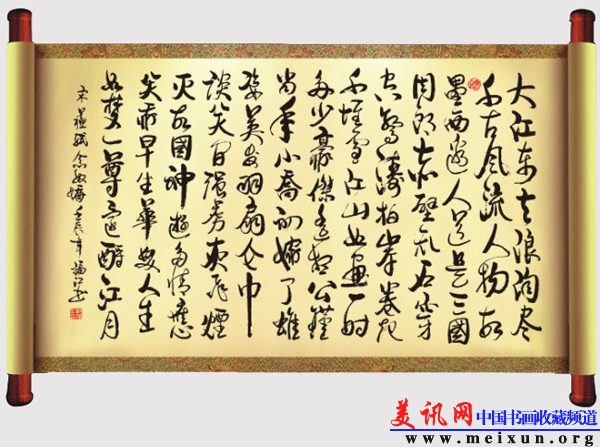 大江东去浪淘尽
千古风流人物故
垒西边人道是三國
周郎赤壁乱石穿
空惊涛拍岸卷起
千堆雪江山如画一时
多少豪傑遥想公瑾
当年小喬初嫁了雄
姿英发羽扇纶巾
谈笑间强虏灰飛煙
灭故國神遊多情應
笑我早生華发人生
如梦一尊还酹江月
宋蘇軾念奴娇壬辰年
美讯网中国书画收藏频道
www.meixun.org